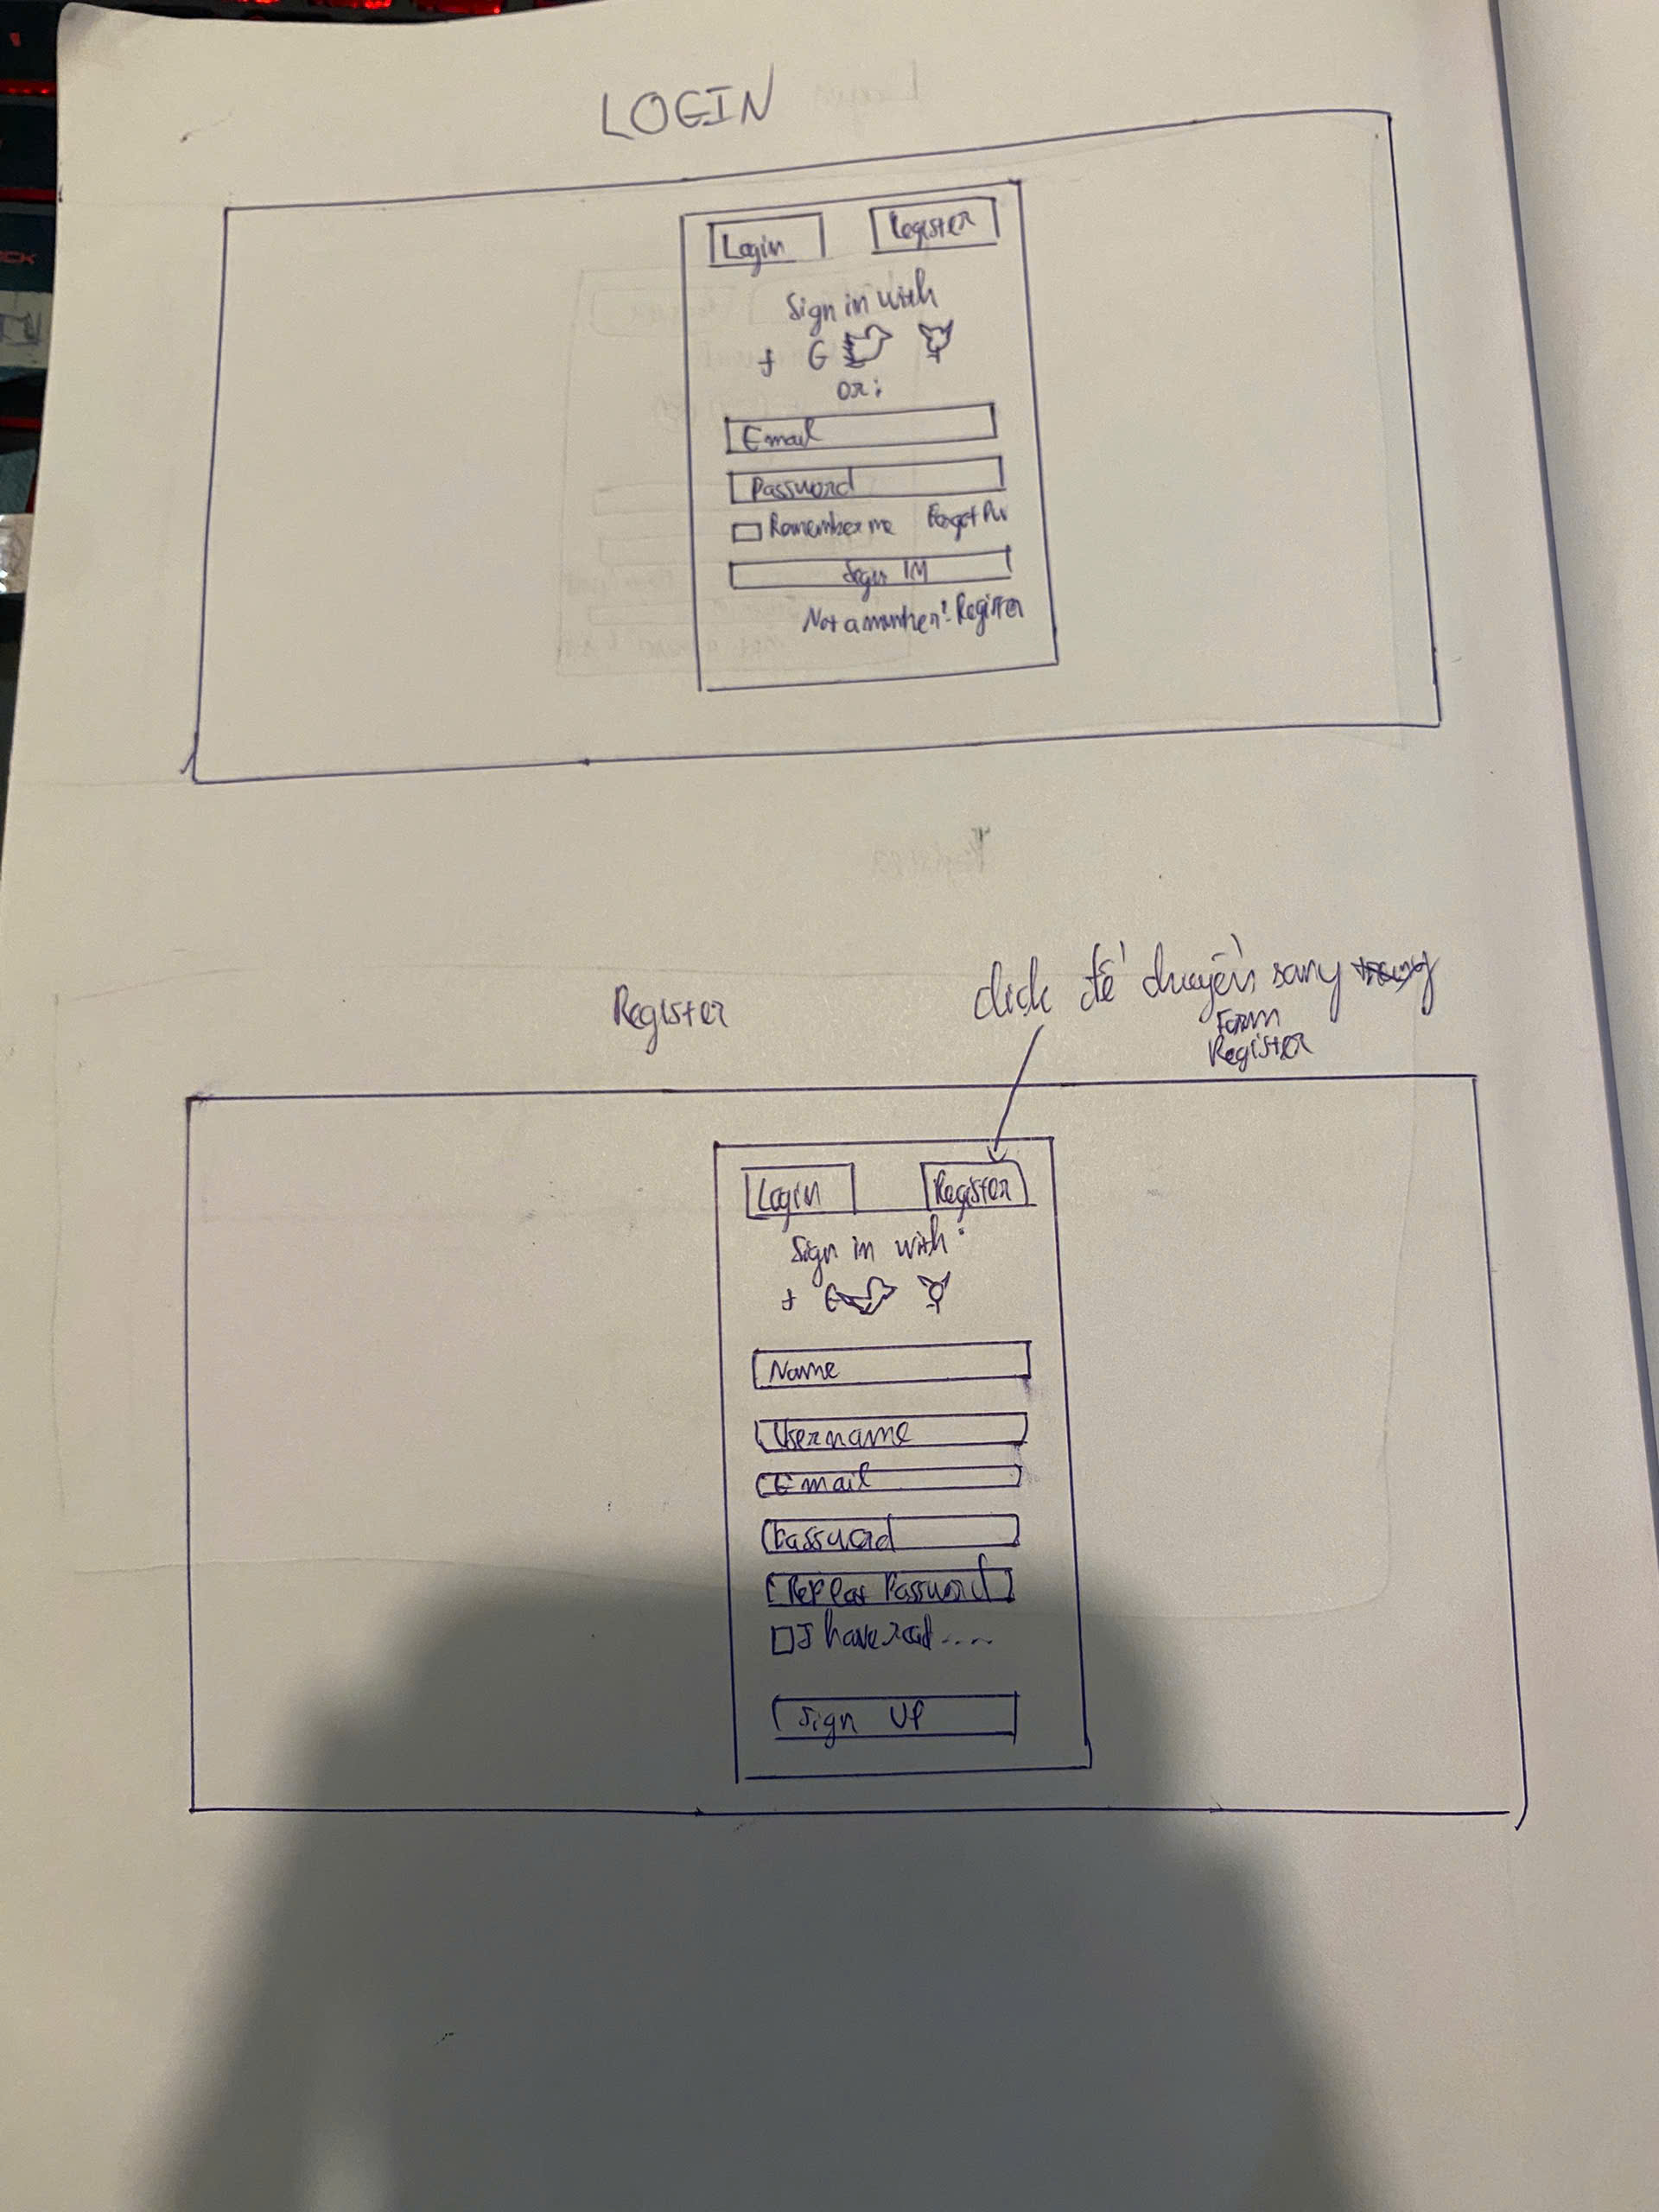 LOGIN
Login
Register
Sign in with
f G
or:
Email
Password
Remember me Forgot Pw
Sign IN
Not a member? Register
Register
click để chuyển sang
Form
Register
Login
Register
Sign in with:
f G
Name
Username
Email
Password
Repeat Password
I have read ....
Sign UP